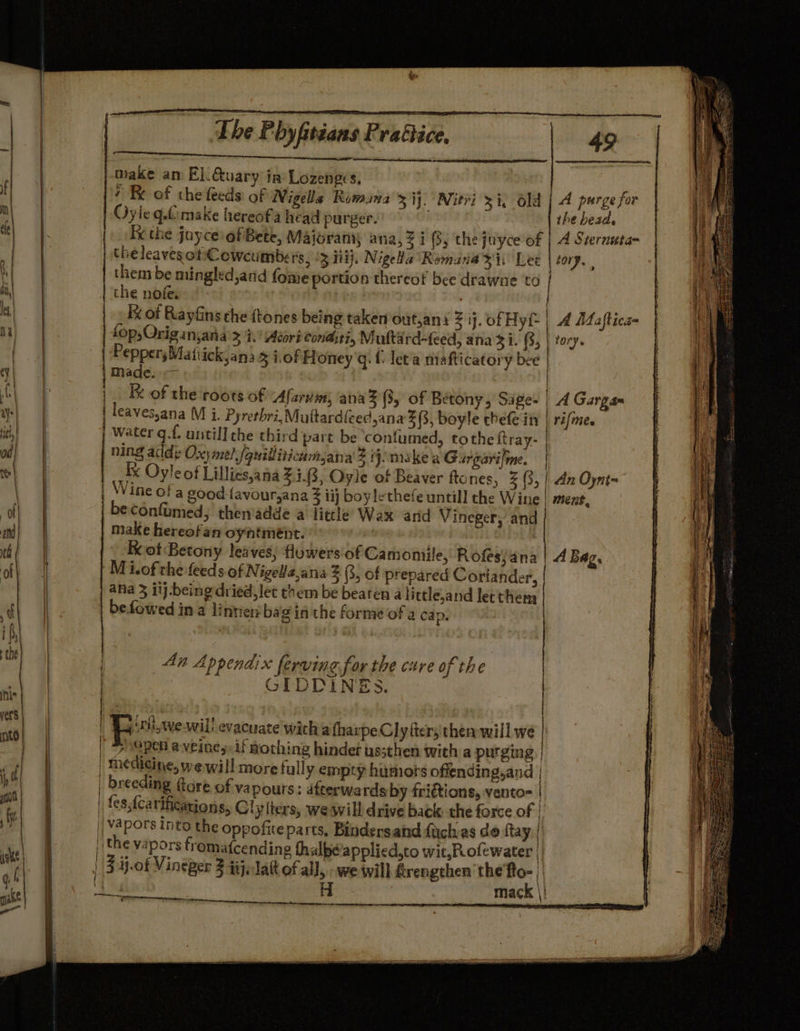 The Phyſitians Practice.
49
make an Electuary in Lozenges,
℞ of the ſeeds of Nigella Romana ʒ ij. Nitri ʒi, old
Oyle q.ſ. make hereof a head purger.
℞ the juyce of Bete, Majoram, ana, ℥ i ß, the juyce of
the leaves of Cowcumbers, ʒ iiij. Nigella Romana ʒi. Let
them be mingled, and ſome portion thereof bee drawne to
the noſe.
℞ of Rayſins the ſtones being taken out, ana ℥ ij. of Hyſ-
ſop, Origan, ana ʒ i. Acori conditi, Muſtard-ſeed, ana ʒ i. ß,
Pepper, Maſtick, ana ʒ i. of Honey q. ſ. let a maſticatory bee
made.
℞ of the roots of Aſarum, ana ℥ ß, of Betony, Sage-
leaves, ana M i. Pyrethri, Muſtardſeed, ana ℥ ß, boyle theſe in
Water q.ſ. untill the third part be conſumed, to the ſtray-
ning adde Oxymel. ſquilliticum, ana ℥ ij. make a Gargariſme.
℞ Oyle of Lillies, ana ℥ i.ß, Oyle of Beaver ſtones, ℥ ß,
Wine of a good ſavour, ana ℥ iij boyle theſe untill the Wine
be conſumed, then adde a little Wax and Vineger, and
make hereof an oyntment.
℞ of Betony leaves, flowers of Camomile, Roſes, ana
M i. of the ſeeds of Nigella, ana ℥ ß, of prepared Coriander,
ana ʒ iij. being dried, let them be beaten a little, and let them
be ſowed in a linnen bag in the forme of a cap.
A purge for
the head.
A Sternuta-
tory.
A Maſtica-
tory.
A Garga-
riſme.
An Oynt-
ment.
A Bag.
An Appendix ſerving for the cure of the
GIDDINES.
Firſt, we will evacuate with a ſharpe Clyſter, then will we
open a veine, if nothing hinder us, then with a purging
medicine, we will more fully empty humors offending, and
breeding ſtore of vapours: afterwards by frictions, vento-
ſes, ſcarifications, Clyſters, we will drive back the force of
vapors into the oppoſite parts. Binders and ſuch as do ſtay
the vapors from aſcending ſhalbe applied, to wit, Roſewater
℥ ij. of Vineger ℥ iij. laſt of all, we will ſtrengthen the ſto-
H
mack